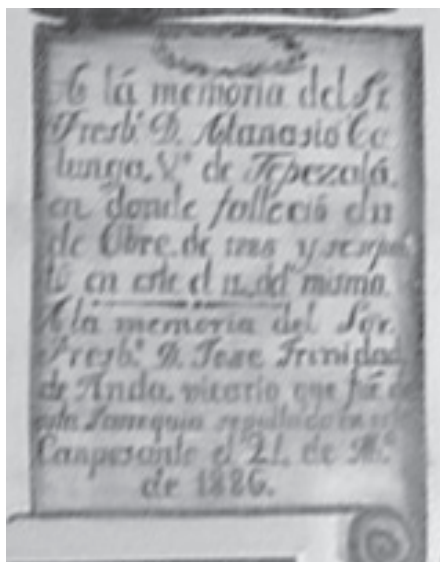 A lá memoria del Sr.
Presb.º D. Atanasio Co
lunga, V.º de Tepezalá,
en donde falleció el 11
de Obre. de y sepul
tó en este el 12 del mismo.
A la memoria del Sor.
Presb.º D. Jose Trinidad
de Anda, vicario que fué de
esta Parroquia sepultado en este
Campo sante el 21. de
de 1886.